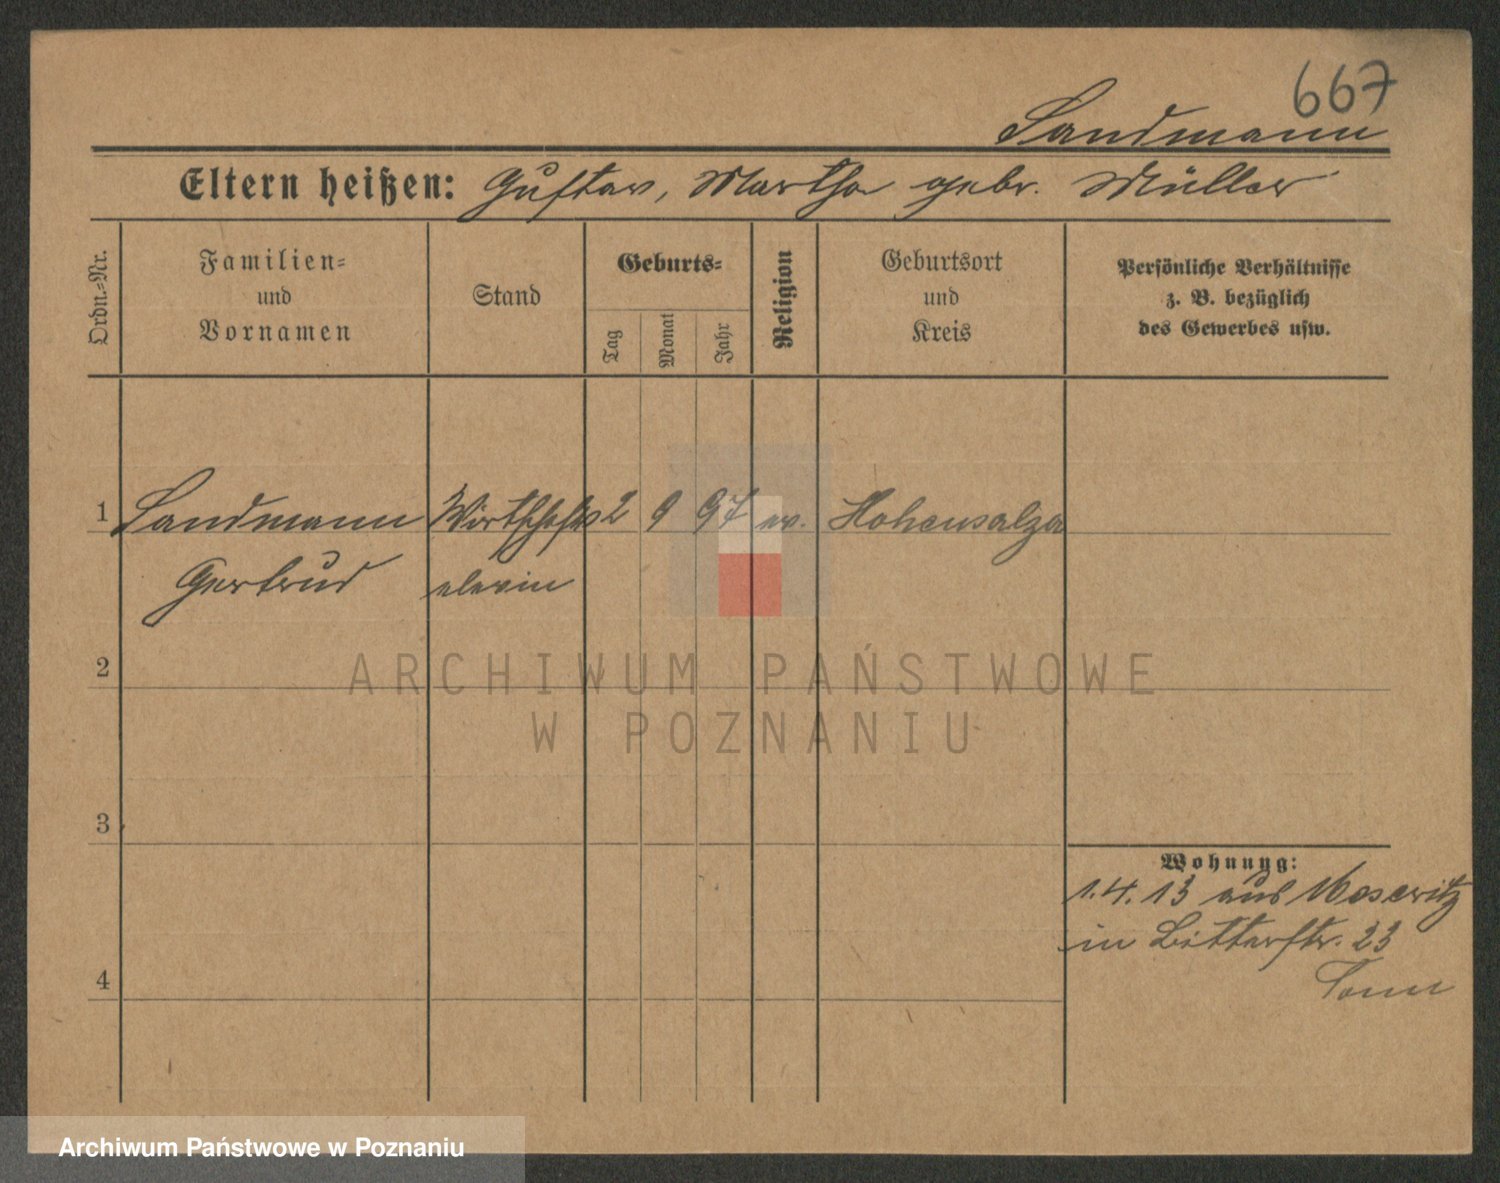 667
Sandmann
Eltern heißen: Gustav, Martha gebr. Müller
Ordn.-Nr.
Familien-
und
Vornamen
Stand
Geburts-
Tag
Monat
Jahr
Religion
Geburtsort
und
Kreis
Persönliche Verhältnisse
z. B. bezüglich
des Gewerbes usw.
1 Sandmann Wirtschafts 2 9 97 ev. Hohensalza
Gertrud elevin
2
ARCHIWUM PAŃSTWOWE
W POZNANIU
3
Wohnung:
1.4.13 aus
in Bitterstr. 23
4
Archiwum Państwowe w Poznaniu